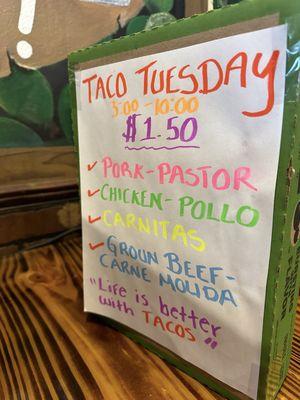 TACO TUESDAY
3:00-10:00
$1.50
✓ PORK-PASTOR
✓ CHICKEN-POLLO
✓ CARNITAS
✓ GROUN BEEF-
CARNE MOLIDA
"Life is better
with TACOS"